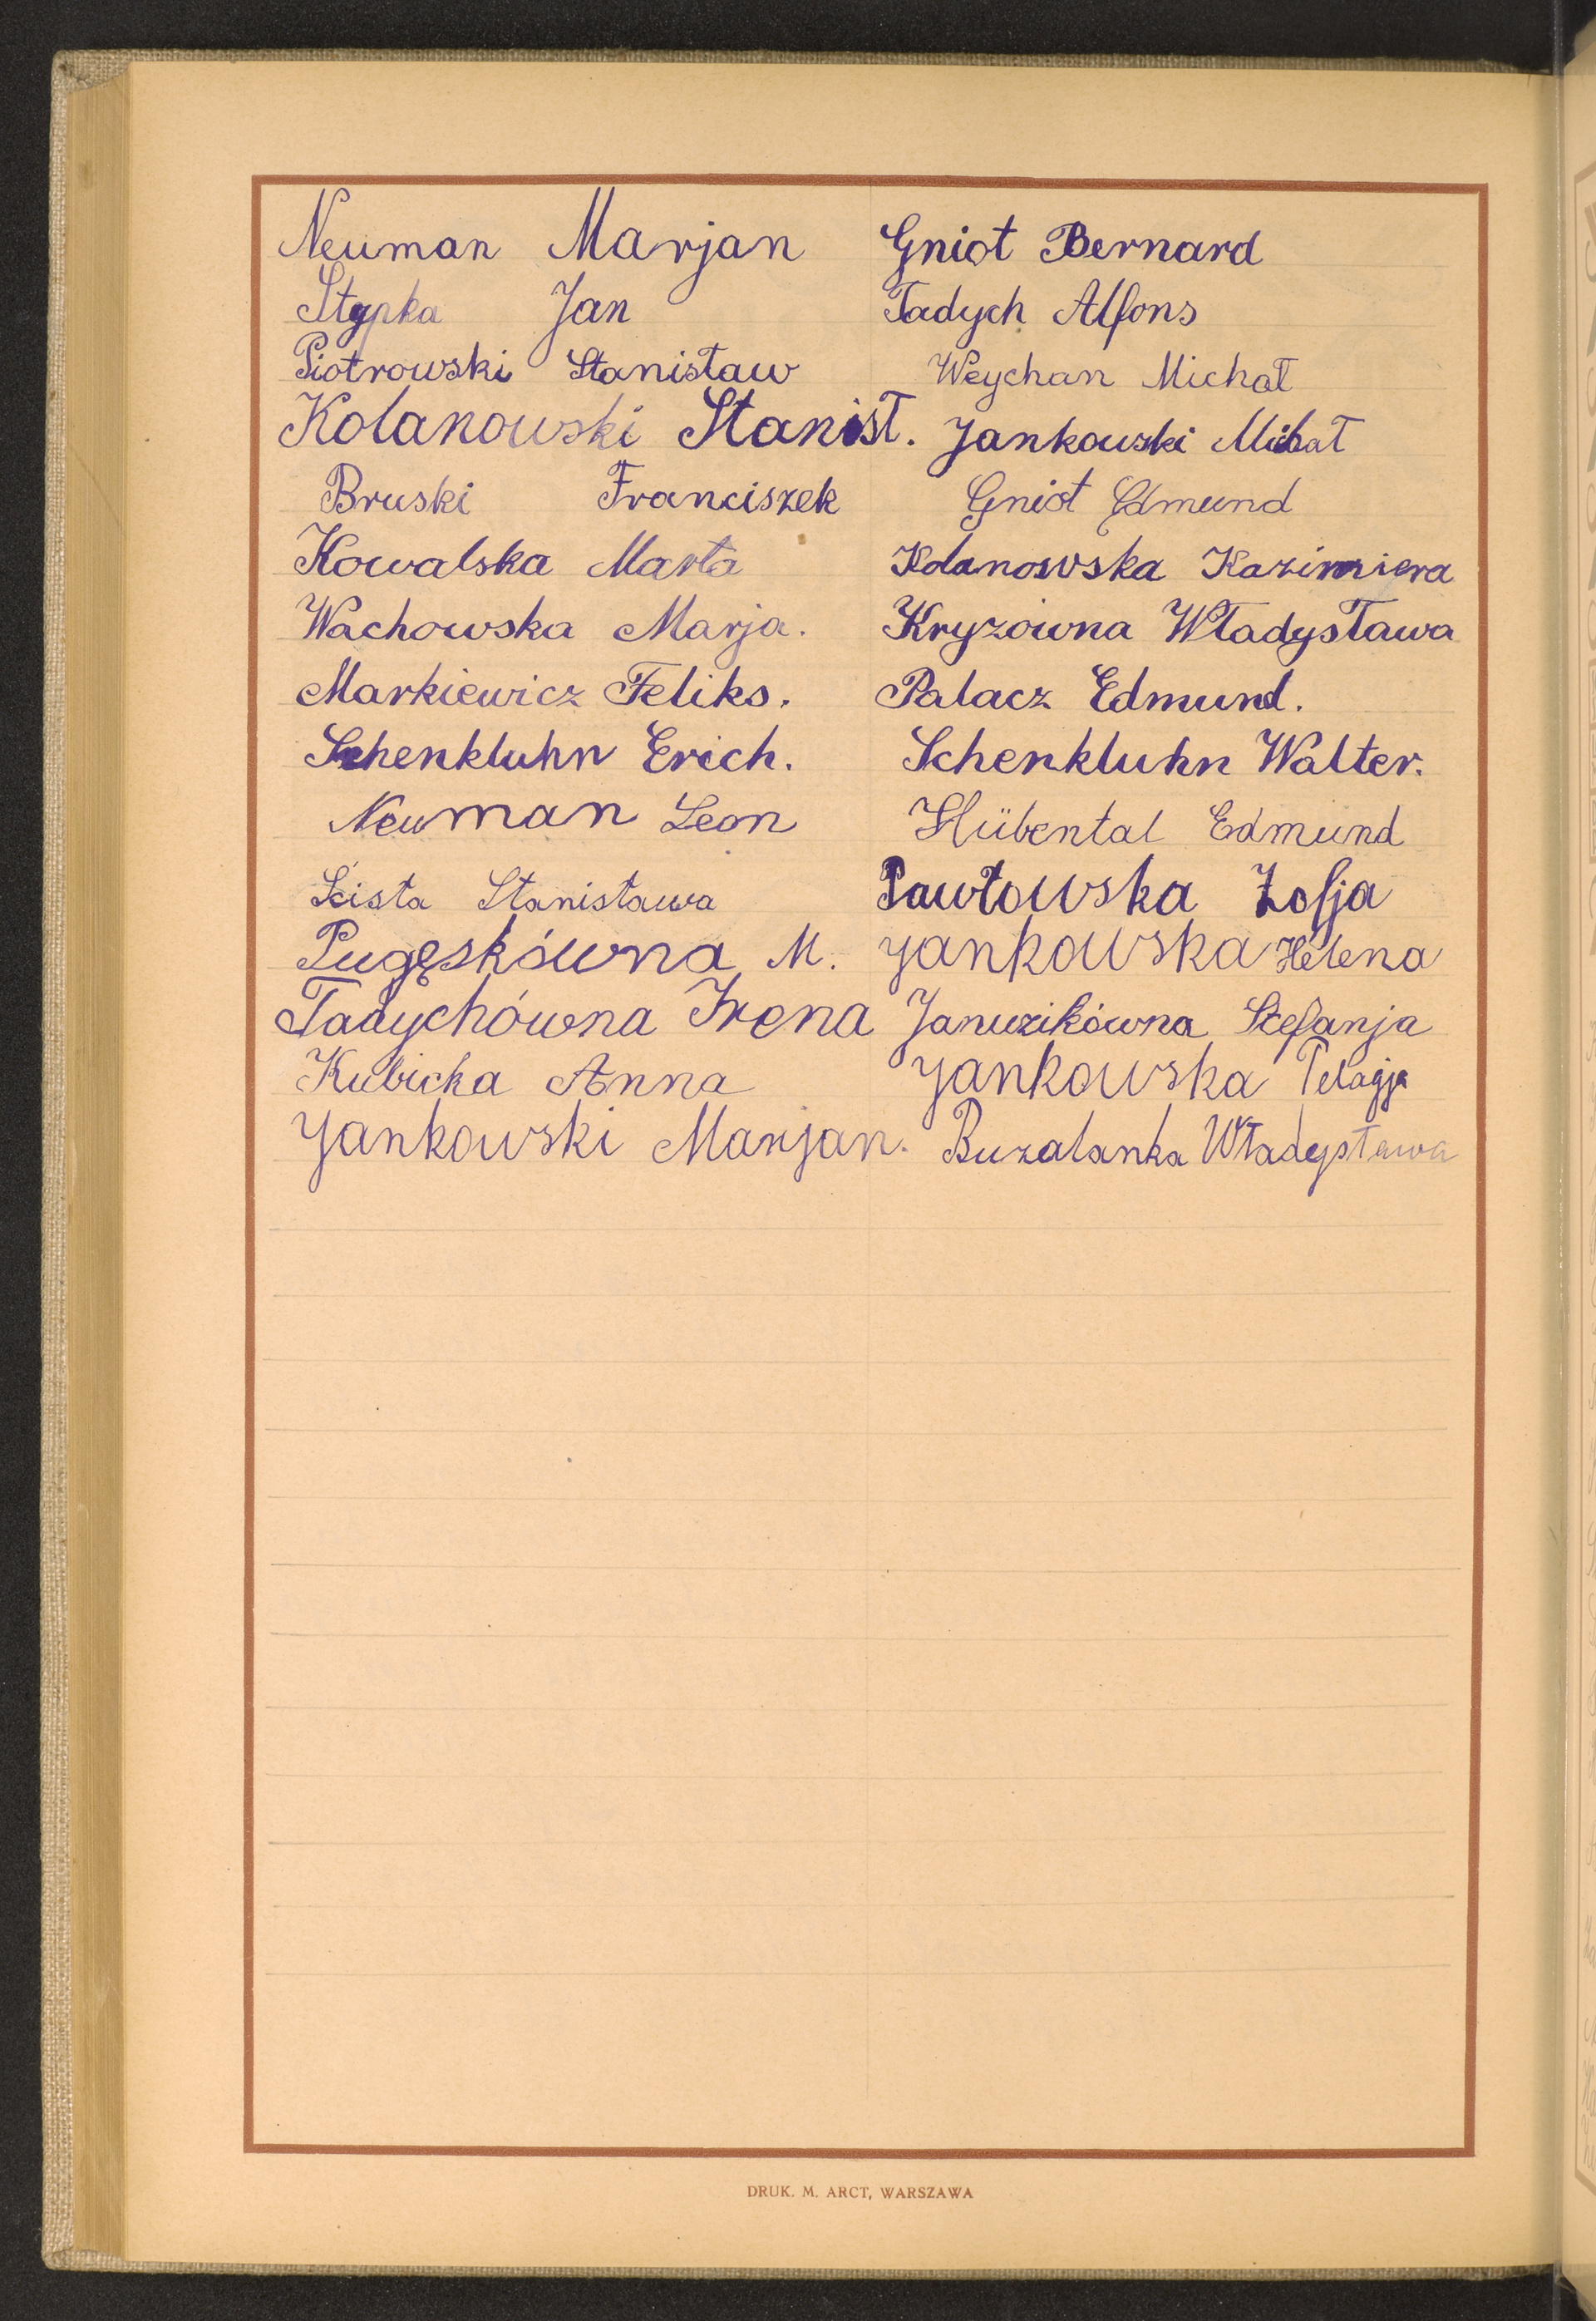 Neuman Marjan
Stypka Jan
Piotrowski Stanisław
Kolanowski Stanisł.
Bruski Franciszek
Kowalska Marta
Wachowska Marja.
Markiewicz Feliks.
Schenkluhn Erich.
Neuman Leon
Ścisła Stanisława
Pugęskówna M.
Tadychówna Irena
Kubicka Anna
Jankowski Marjan.
Gniot Bernard
Tadych Alfons
Weychan Michał
Jankowski Michał
Gniot Edmund
Kolanowska Kazimiera
Kryzówna Władysława
Palacz Edmund.
Schenkluhn Walter.
Hübental Edmund
Pawłowska Zofja
Jankowska Helena
Januzikówna Stefanja
Jankowska Pelagja
Buzalanka Władysława
DRUK. M. ARCT, WARSZAWA